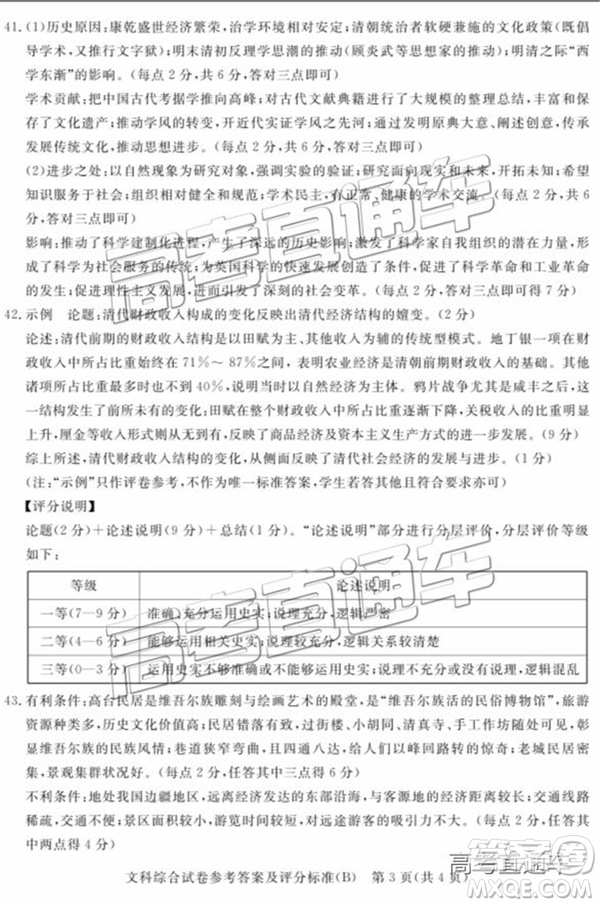 41. (1)历史原因:康乾盛世经济繁荣,治学环境相对安定;清朝统治者软硬兼施的文化政策(既倡
导复古,又推行文字狱);明末清初反理学思潮的推动(顾炎武等思想家的推动);明清之际“西
学东渐”的影响。(每点2分,共6分,答对三点即可)
学术贡献:把中国古代考据学推向高峰;对古代文献典籍进行了大规模的整理总结,保存了
文化遗产;推动学风的转变,开近代实证学风之先河;通过发明原典大义、阐述创意,传承发
展传统文化,推动思想进步。(每点2分,共6分,答对三点即可)
(2)进步之处:以自然现象为研究对象;研究方面宗旨实验;面向现实和未来,开拓未知;希望
知识服务于社会;组织相对健全和规范;学术民主,有正常、健康的学术交流。(每点2分,共6
分,答对三点即可)
影响:推动了科学建制化进程,产生了深远的历史影响;激发了科学家自我组织的潜在力量,形
成了科学为社会服务的传统;为英国科学的快速发展创造了条件,促进了科学革命和工业革命
的发生;引发了深刻的社会变革。(每点2分,答对三点即可得7分)
42. 示例 论题:清代财政收入构成的变化反映出清代经济结构的嬗变。(2分)
论述:清代前期的财政收入结构是以田赋为主、其他收入为辅的传统型模式。地丁银一项在财
政收入中所占比重维持在71%~87%之间,表明农业经济是清朝前期财政收入的基础。其他
诸项所占比重均不到40%,说明当时以自然经济为主体。鸦片战争尤其是咸丰之后,这
一结构发生了明显变化:田赋在整个财政收入中所占比重不断下降,关税收入的比重明显
上升,厘金等收入形式则从无到有,反映了商品经济及资本主义生产方式的扩大。(9分)
综上所述,清代财政收入结构的变化反映出清代经济结构的嬗变。(1分)
(注:“示例”只作评卷参考,不作为唯一标准答案,学生若答其他且符合要求亦可)
【评分说明】
论题(2分)+论述说明(9分)+总结(1分)。“论述说明”部分进行分层评价,分层评价等级
如下:
等级 论述说明
一等(7—9分) 准确、充分运用史实;说理充分,逻辑严密
二等(4—6分) 能够运用相关史实;说理较充分,逻辑关系较清楚
三等(0—3分) 运用史实不够准确或不能够运用史实;说理欠充分,逻辑混乱
43. 有利条件:高台民居是维吾尔族雕刻与绘画艺术的殿堂,是“维吾尔族活的民俗博物馆”,旅游
资源类型多样,历史文化价值高;民居错落有致,过街楼、小胡同、清真寺、手工作坊一应俱全,彰
显维吾尔族的民族风情;巷道狭窄弯曲,且四通八达,给人以探路的神秘和出路的惊奇;老城民居密
集,景观集群状况好。(每点2分,任答其中三点得6分)
不利条件:地处我国边疆地区,远离经济发达的东部沿海,与客源地的经济距离较长;交通线路
稀疏,交通不便;景区面积较小,游览时间较短,对远途游客的吸引力不大。(每点2分,任答其
中两点得4分)
文科综合试卷参考答案及评分标准(B) 第3页(共4页)
高考直通车
高考直通车
高考直通车
高考直通车